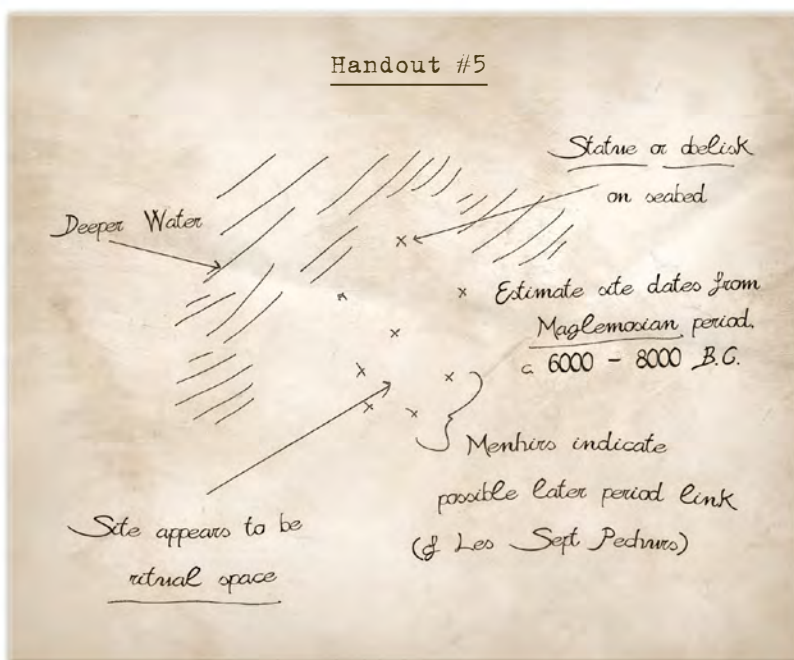 Handout #5
Statue or obelisk
on seabed
Deeper Water
Estimate site dates from
Maglemosian period,
c. 6000 - 8000 B.C.
Menhirs indicate
possible later period link
(cf Les Sept Pecheurs)
Site appears to be
ritual space